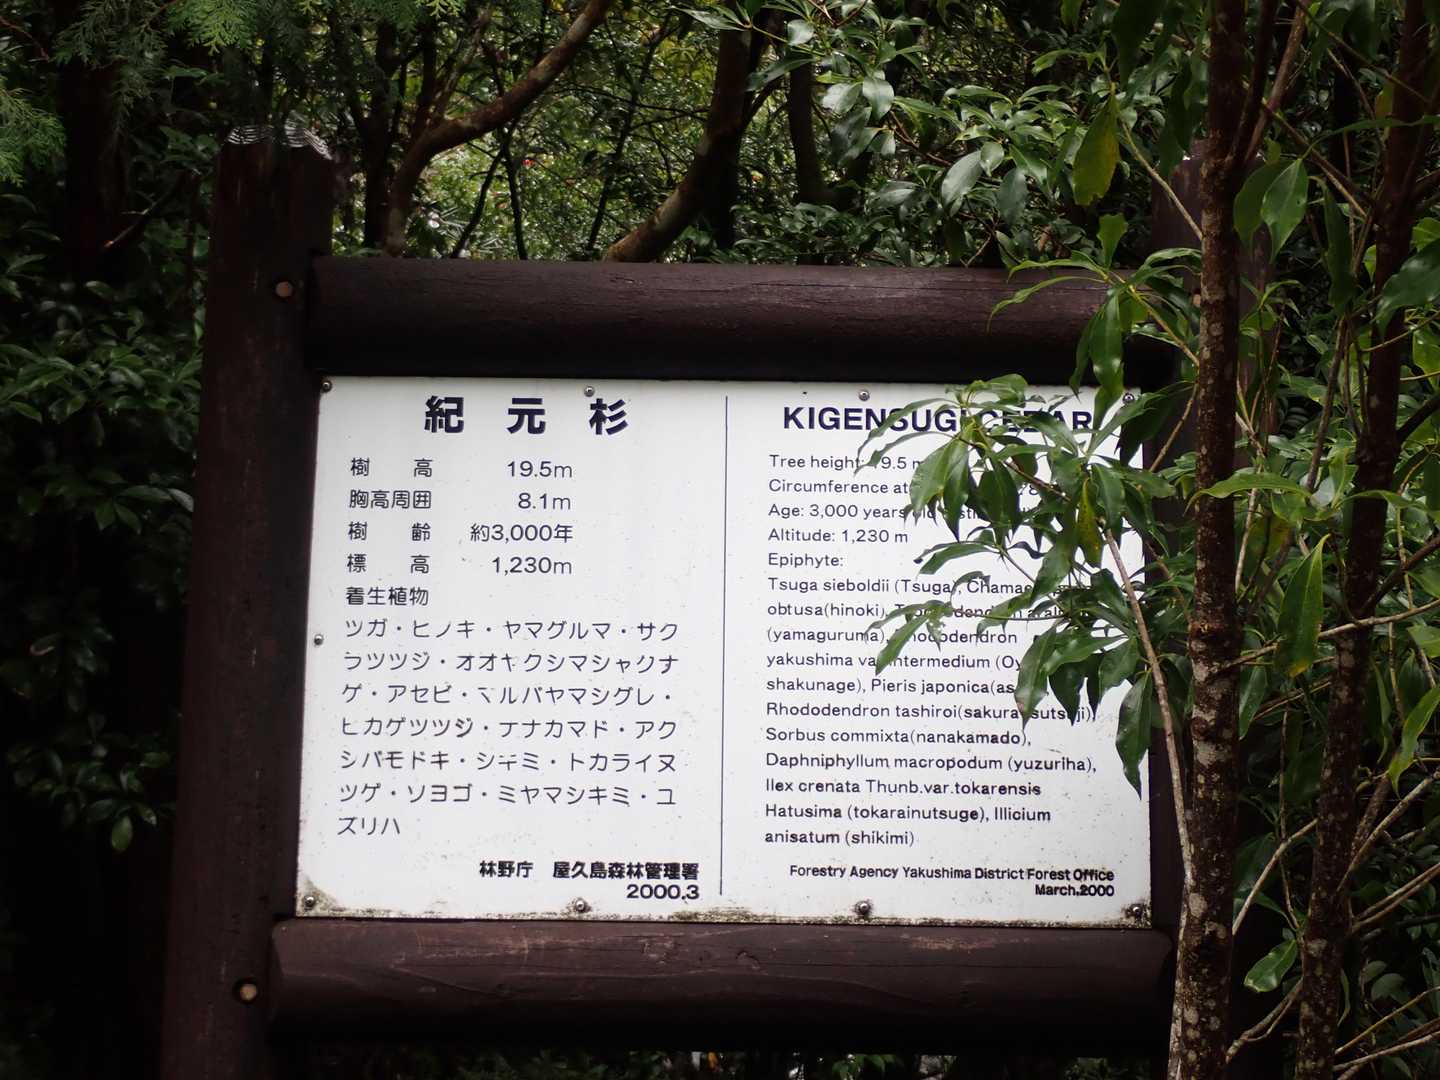 紀元杉
樹高 19.5m
胸高周囲 8.1m
樹齢 約3,000年
標高 1,230m
着生植物
ツガ・ヒノキ・ヤマグルマ・サク
ラツツジ・オオヤクシマシャクナ
ゲ・アセビ・マルバヤマシグレ・
ヒカゲツツジ・ナナカマド・アク
シバモドキ・シキミ・トカライヌ
ツゲ・ソヨゴ・ミヤマシキミ・ユ
ズリハ
林野庁 屋久島森林管理署
2000.3
KIGENSUGI CEDAR
Tree height: 19.5 m
Circumference at
Age: 3,000 years old
Altitude: 1,230 m
Epiphyte:
Tsuga sieboldii (Tsuga),
obtusa(hinoki),
(yamaguruma), Rhododendron
yakushima var intermedium
shakunage), Pieris japonica
Rhododendron tashiroi(sakuratsutsuji),
Sorbus commixta(nanakamado),
Daphniphyllum macropodum (yuzuriha),
Ilex crenata Thunb.var.tokarensis
Hatusima (tokarainutsuge), Illicium
anisatum (shikimi)
Forestry Agency Yakushima District Forest Office
March,2000